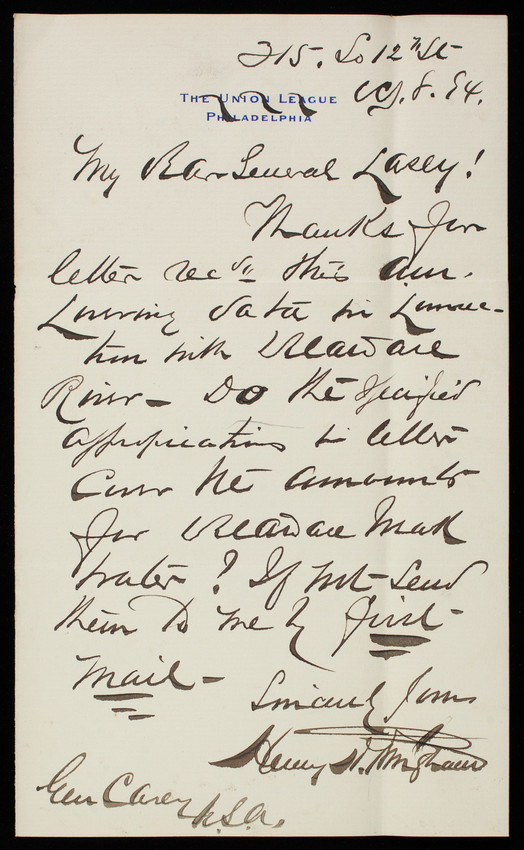 215. So 12th St
THE UNION LEAGUE
PHILADELPHIA
Oct. 8. 94.
My Dear General Casey!
Thanks for
letter recd this a.m.
Covering data in Connec-
tion with Delaware
River – Do the specified
appropriations in letter
Cover the amounts
for Delaware
water? If not send
them to me by first
Mail –
Sincerely Yours
Henry H. Bingham
Gen Casey U.S.A.